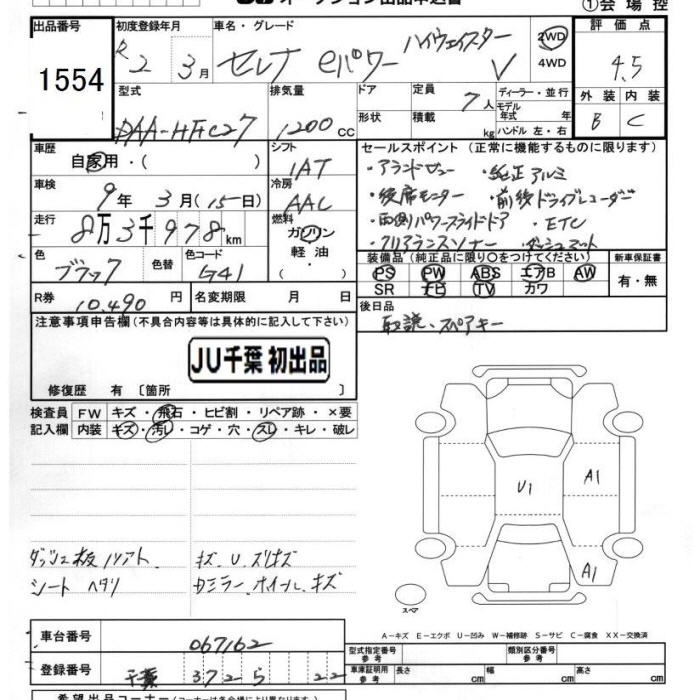 オークション出品申込書
①会場控
出品番号 1554
初度登録年月 R2年 3月
車名・グレード セレナ eパワー ハイウェイスター V
2WD
4WD
評価点 4.5
型式 DAA-HFC27
排気量 1200 CC
ドア
形状
定員 7人
積載 kg
ディーラー・並行
モデル年式 年
ハンドル 左・右
外装 B
内装 C
車歴 自家用・( )
シフト IAT
セールスポイント（正常に機能するものに限ります）
・アラウンドビュー ・純正アルミ
・後席モニター ・前後ドライブレコーダー
・両側パワースライドドア ・ETC
・クリアランスソナー ・ダッシュマット
車検 9年 3月(15日)
冷房 AAC
走行 8万3千978km
燃料 ガソリン
軽油
・( )
色 ブラック
色替
色コード G41
装備品（純正品に限り○をつけてください）
PS PW ABS エアB AW
SR ナビ TV カワ
新車保証書
有・無
R券 10,490円
名変期限 月 日
後日品
取説、スペアキー
注意事項申告欄（不具合内容等は具体的に記入して下さい）
JU千葉 初出品
修復歴 有〔箇所 〕
検査員記入欄
FW キズ・飛石・ヒビ割・リペア跡・×要
内装 キズ・汚レ・コゲ・穴・スレ・キレ・破レ
U1
A1
A1
スペア
ダッシュ板ノリアト、
シートヘタリ
キズ、U、ズリキズ
Cミラー、ホイール、キズ
A－キズ E－エクボ U－凹み W－補修跡 S－サビ C－腐食 XX－交換済
車台番号 067162
登録番号 千葉 372 ら ・・22
型式指定番号 参考
類別区分番号 参考
車庫証明用 参考
長さ cm
幅 cm
高さ cm
希望出品コーナー（コーナーは各会場により異なります）